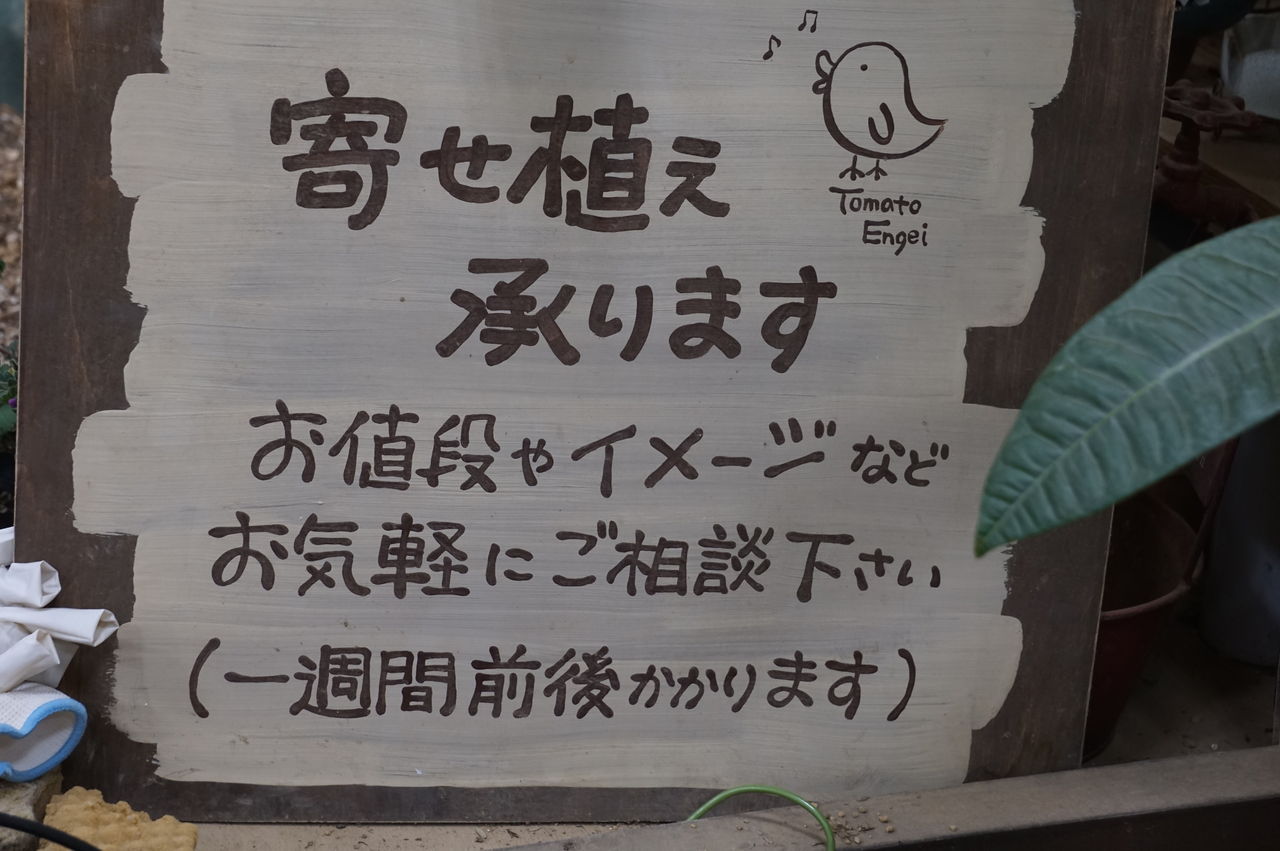 寄せ植え
Tomato
Engei
承ります
お値段やイメージなど
お気軽にご相談下さい
(一週間前後かかります)